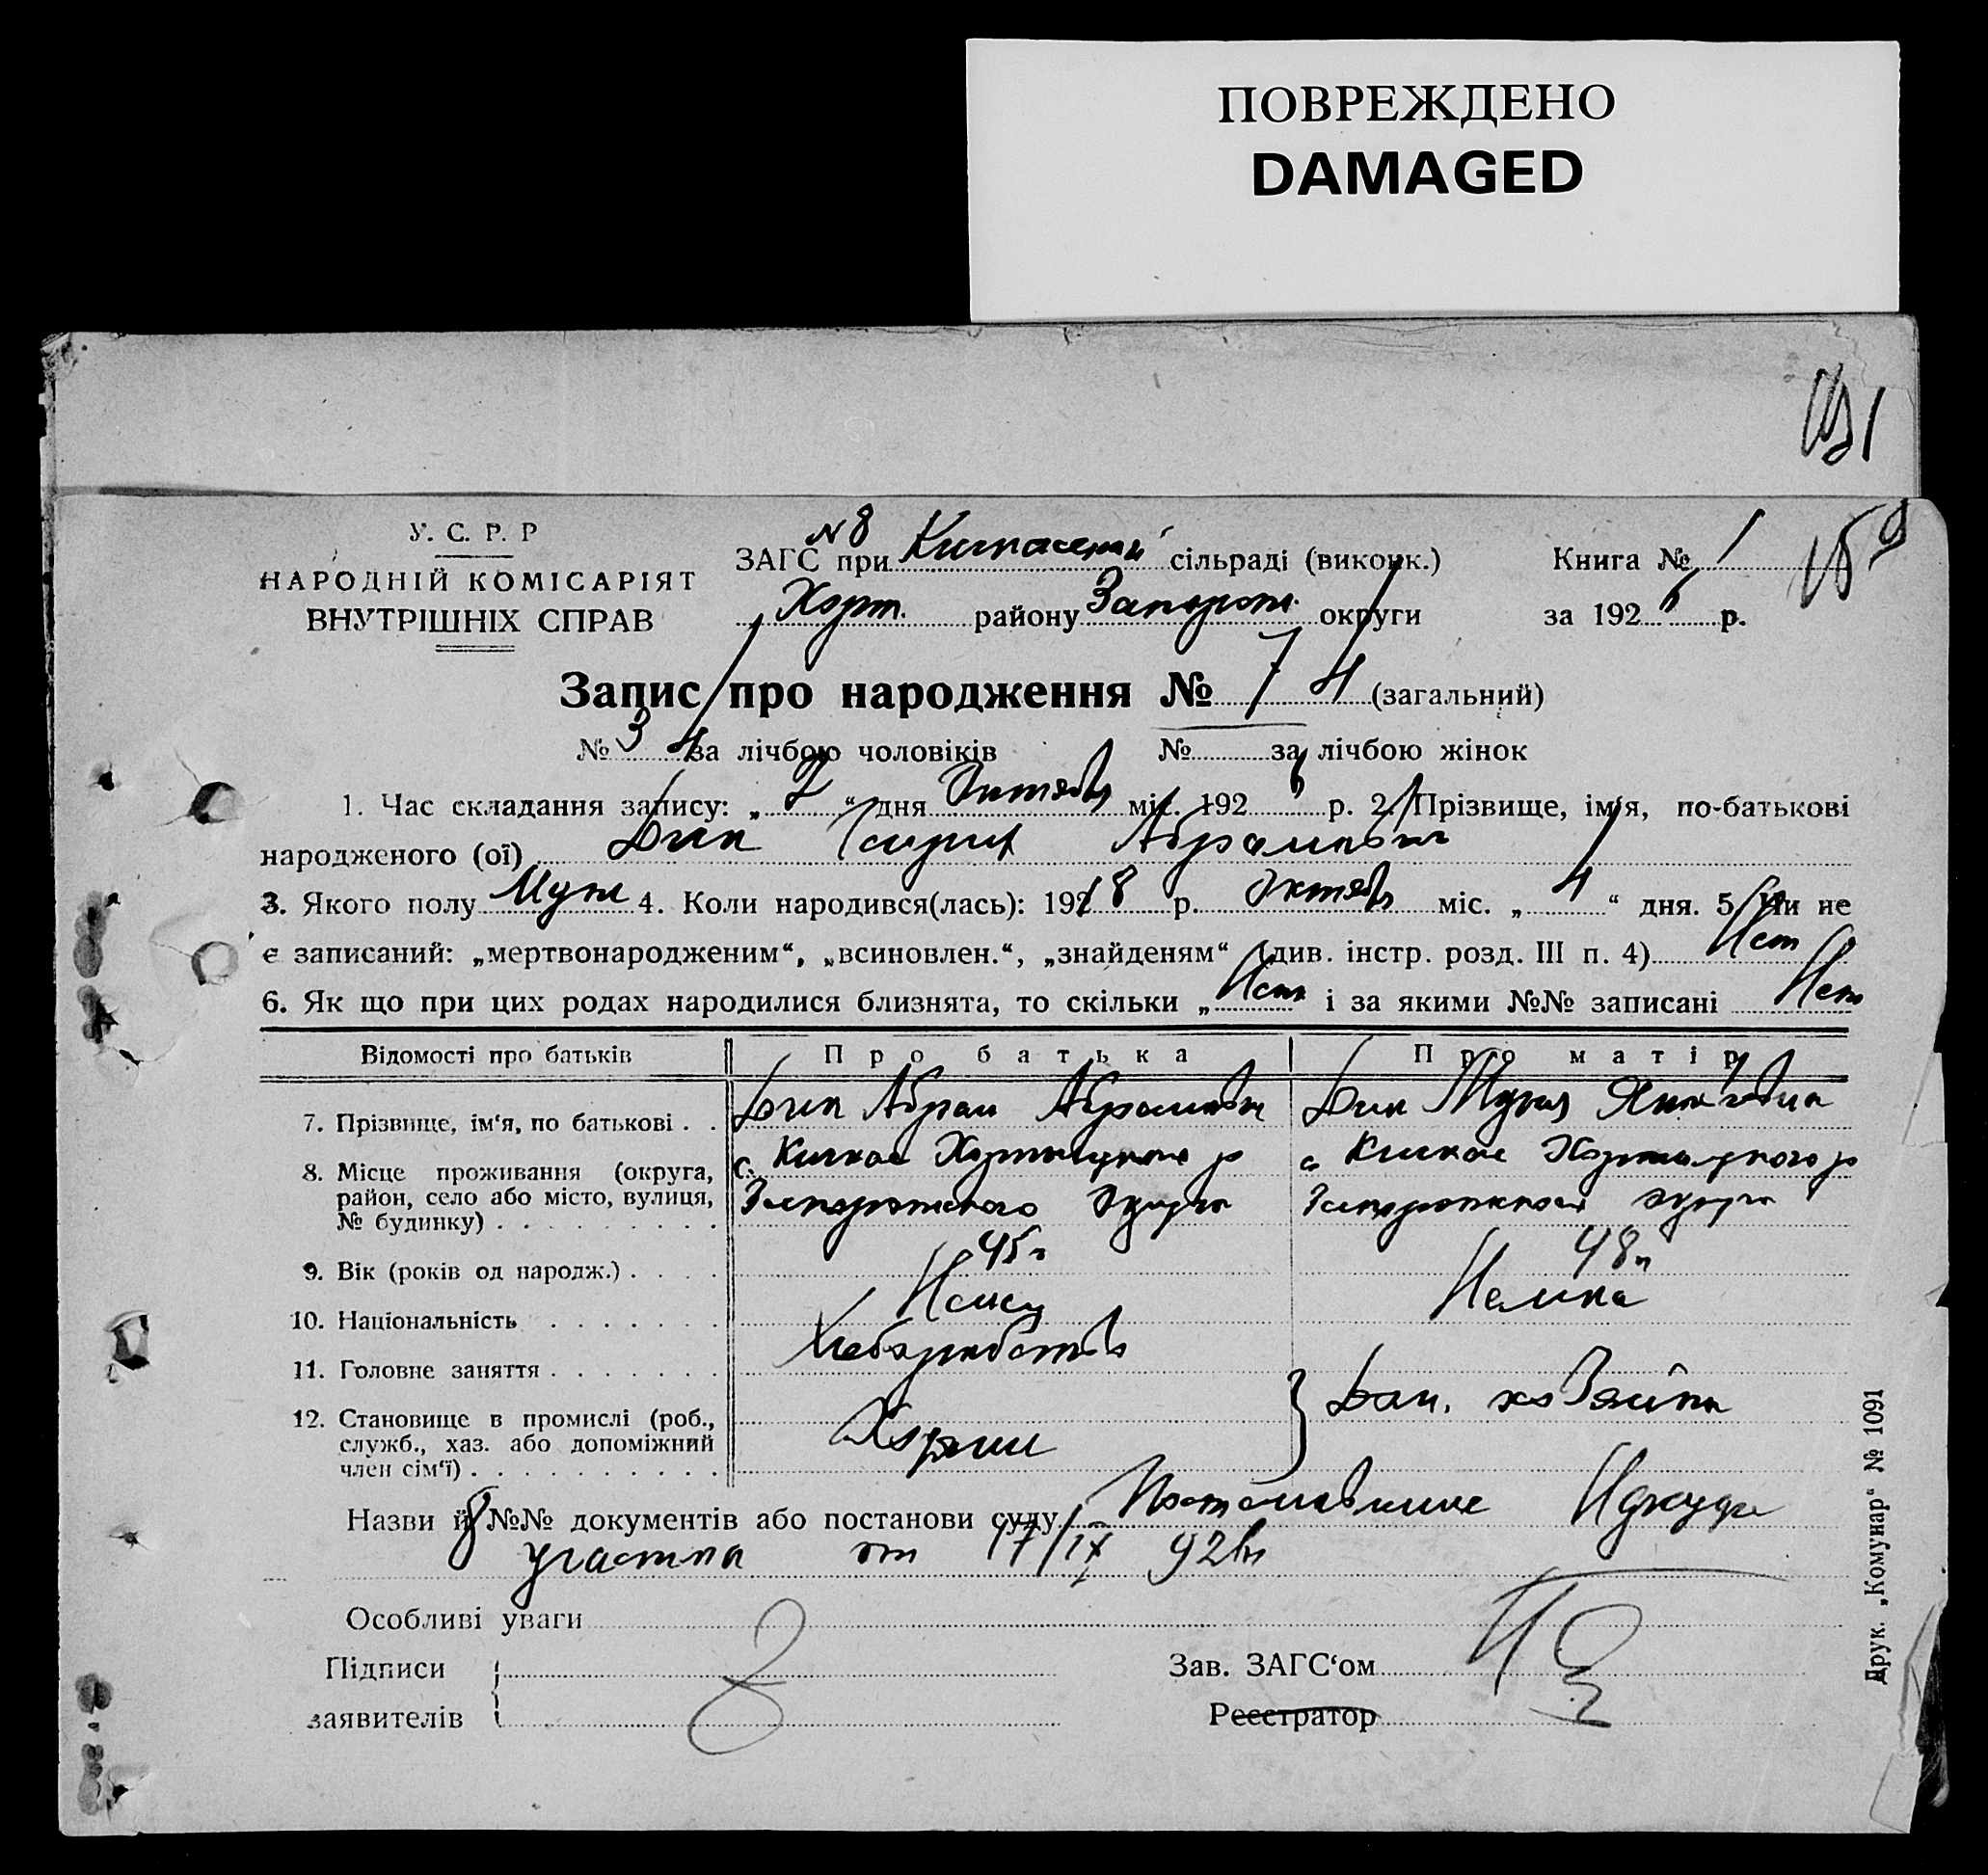 ПОВРЕЖДЕНО
DAMAGED
У. С. Р. Р
НАРОДНІЙ КОМІСАРІЯТ
ВНУТРІШНІХ СПРАВ
№ 8
ЗАГС при сільраді (виконк.)
Хорт. району Запорож. округи
Книга № 1
за 1926 р.
Запис про народження № 74 (загальний)
№ 34 за лічбою чоловіків № за лічбою жінок
1. Час складання запису: „ 7 “ дня Октябр міс. 1926 р. 2. Прізвище, ім'я, по-батькові
народженого (ої) Дик Абрамович
3. Якого полу Муж 4. Коли народився(лась): 1918 р. Октябр міс. „ 4 “ дня. 5. Чи не
є записаний: „мертвонародженим“, „всиновлен.“, „знайденям“ (див. інстр. розд. III п. 4) Нет
6. Як що при цих родах народилися близнята, то скільки „ Нет і за якими №№ записані Нет
Відомості про батьків Про батька Про матір
7. Прізвище, ім‘я, по батькові . . Дик Абрам Абрамович Дик Мария
8. Місце проживання (округа, район, село або місто, вулиця, № будинку) . . . . . . . . .
с. Кичкас Хортицкого р с Кичкас Хортицкого р
Запорожского округа Запорожского округа
9. Вік (років од народж.) . . . . 45 г 48 л
10. Національність . . . . . . . Немец Немка
11. Головне заняття . . . . . . . Хлебороботв
12. Становище в промислі (роб., служб., хаз. або допоміжний член сім‘ї) . . . . . . . . . . Хозяин
Дом. хозяйка
Назви й №№ документів або постанови суду Постановление Нарсуда
8 участка от 17/IX 926 г
Особливі уваги
Підписи
заявителів
Зав. ЗАГС‘ом
Реєстратор
Друк. „Комунар“ № 1091